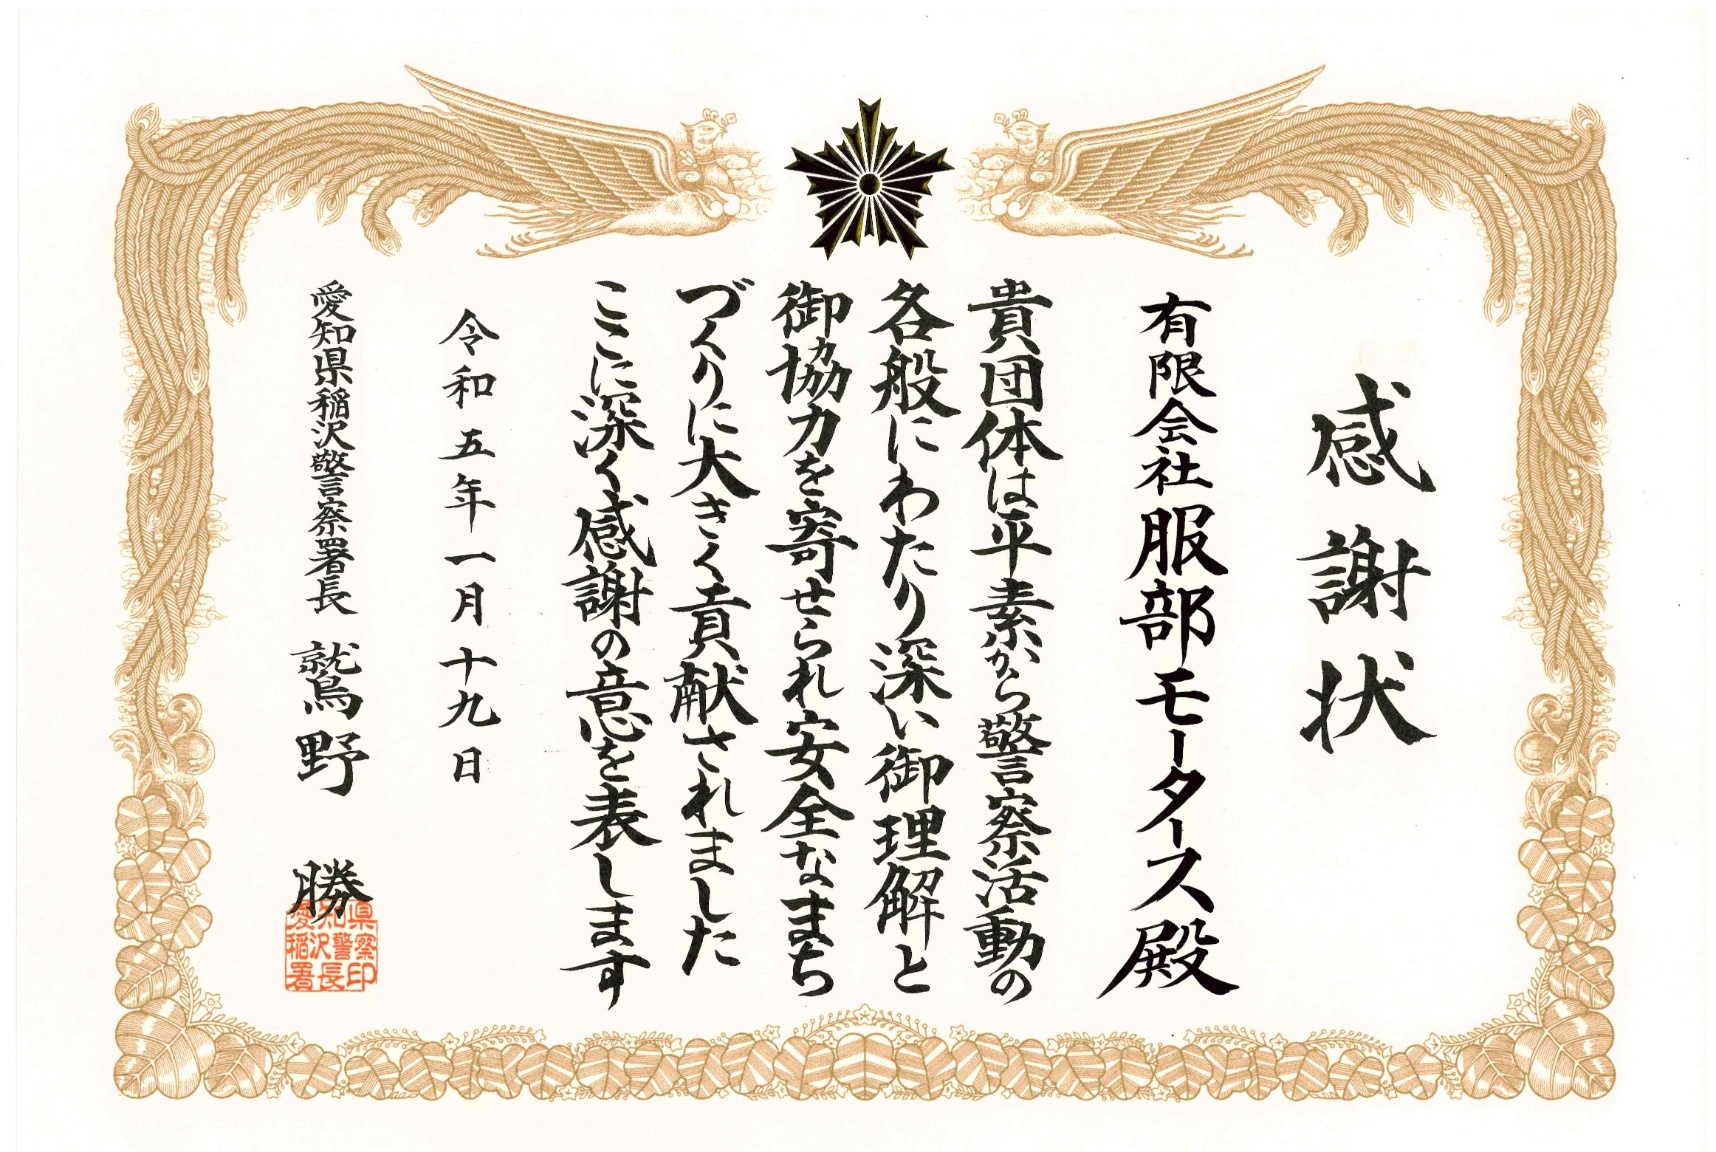 感謝状
有限会社服部モータース殿
貴団体は平素から警察活動の
各般にわたり深い御理解と
御協力を寄せられ安全なまち
づくりに大きく貢献されました
ここに深く感謝の意を表します
令和五年一月十九日
愛知県稲沢警察署長 鷲野 勝
愛知県
稲沢警察
署長印